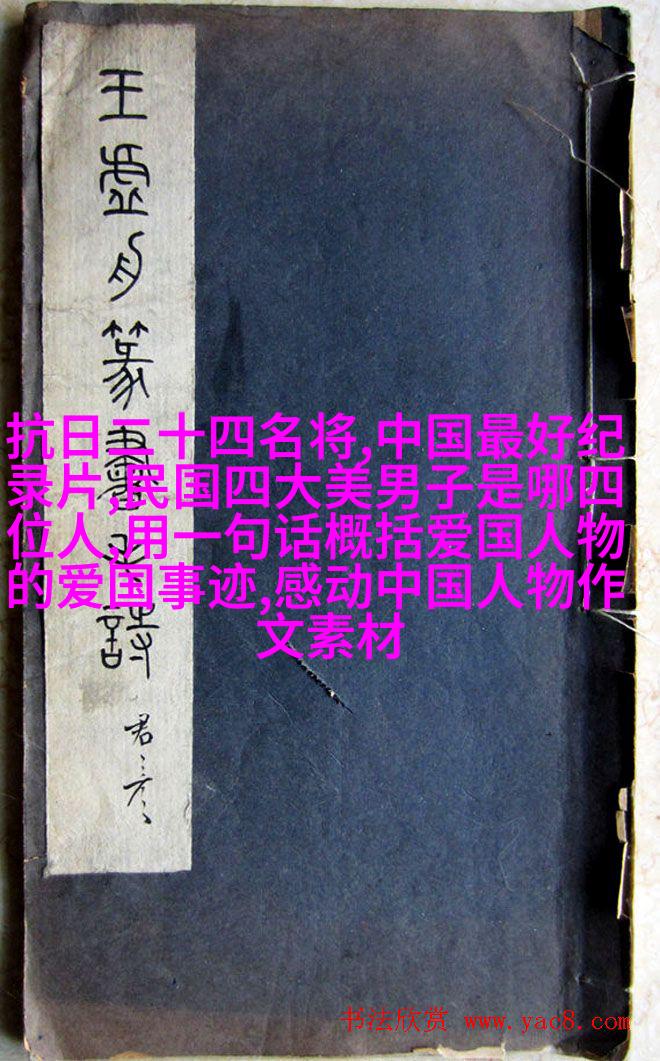 王虚舟篆书唐诗
君彦
抗日二十四名将,中国最好纪
录片,民国四大美男子是哪四
位人,用一句话概括爱国人物
的爱国事迹,感动中国人物作
文素材
书法欣赏 www.yac8.com